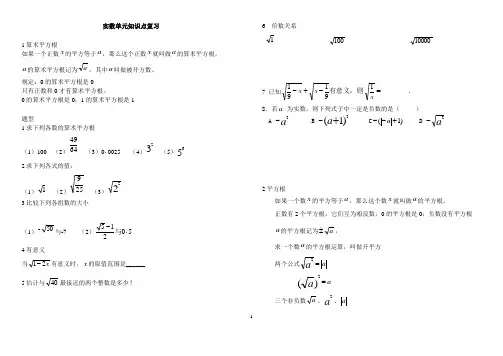 实数单元知识点复习
1 算术平方根
如果一个正数x的平方等于a，那么这个正数x就叫做a的算术平方根。
a的算术平方根记为√a，其中a叫做被开方数。
规定：0的算术平方根是0
只有正数和0才有算术平方根。
0的算术平方根是0；1的算术平方根是1
题型
1 求下列各数的算术平方根
（1）100 （2）49/64 （3）0·0025 （4）3² （5）5⁶
2 求下列各式的值：
（1）√1 （2）√(9/25) （3）√(2²)
3 比较下列各组数的大小
（1）-√50与-7 （2）(√5-1)/2与0·5
4 有意义
当√(1-2x)有意义时，x的取值范围是
5 估计与√40最接近的两个整数是多少？
6 倍数关系
√1 √100 √10000
7 已知√(1/9-x)+√(x-1/9)有意义，则√(1/x)= .
8．若a为实数，则下列式子中一定是负数的是（ ）
A -a² B -(a+1)² C-(|-a|+1) D -√(a²)
2 平方根
如果一个数x的平方等于a，那么这个数x就叫做a的平方根。
正数有2个平方根，它们互为相反数；0的平方根是0；负数没有平方根
a的平方根记为±√a。
求一个数a的平方根运算，叫做开平方
两个公式√(a²)=|a|
(√a)²=a
三个非负数√a、a²、|a|
1